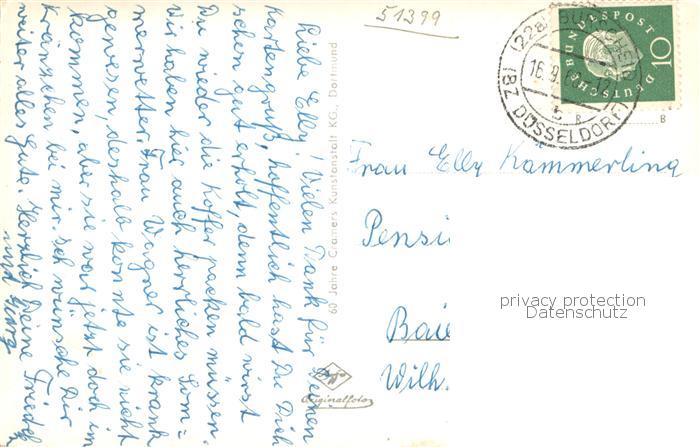 51399
DEUTSCHE BUNDESPOST
10
(22a) BURSCHEID
16.9.
(BZ. DÜSSELDORF)
B
Liebe Elly! Vielen Dank für Deinen
Kartengruß, hoffentlich hast Du Dich
schön gut erholt, denn bald wirst
Du wieder die Koffer packen müssen.
Wir haben hier auch herrliches Som=
merwetter. Frau Wagner ist krank
gewesen, deshalb konnte sie nicht
kommen, aber sie war jetzt doch im
Kränzchen bei mir. Ich wünsche Dir
weiter alles Gute. Herzlich Deine Friedel
und Georg
60 Jahre Cramers Kunstanstalt KG., Dortmund
Agfa
Originalfoto
Frau Elly Kammerling
Pensi
Baie
Wilh.
privacy protection
Datenschutz